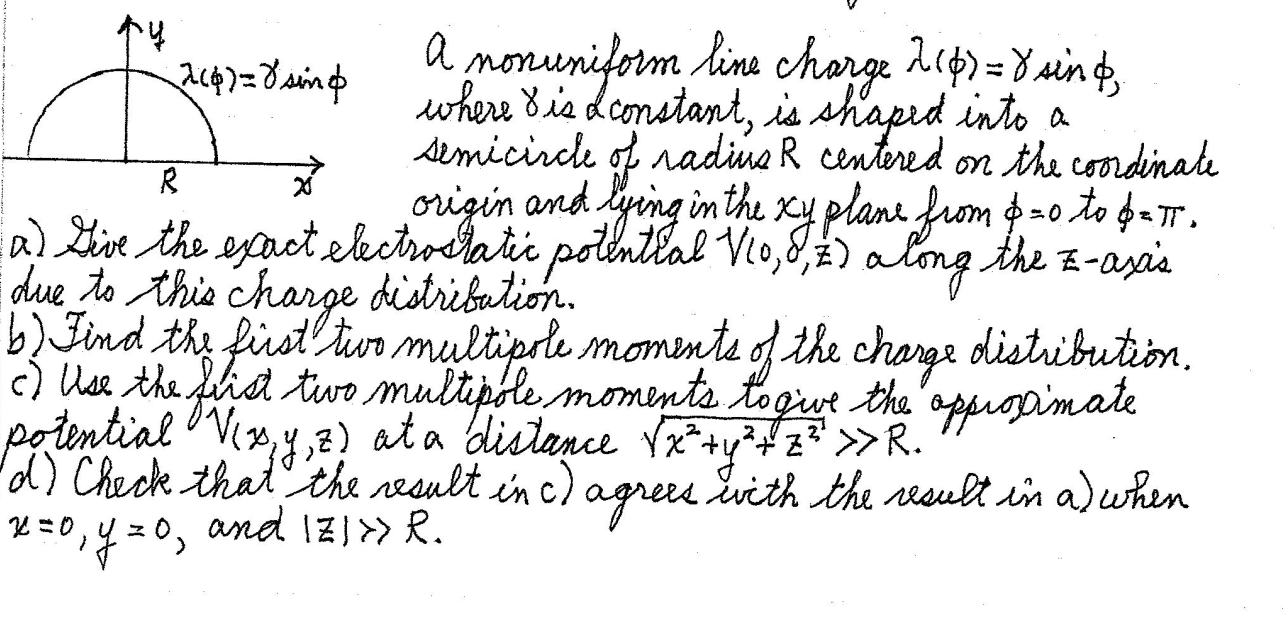 y
λ(φ)=γ sin φ
R
x
A nonuniform line charge λ(φ)=γ sin φ,
where γ is a constant, is shaped into a
semicircle of radius R centered on the coordinate
origin and lying in the xy plane from φ=0 to φ=π.
a) Give the exact electrostatic potential V(0,0,z) along the z-axis
due to this charge distribution.
b) Find the first two multipole moments of the charge distribution.
c) Use the first two multipole moments to give the approximate
potential V(x,y,z) at a distance √x²+y²+z² >> R.
d) Check that the result in c) agrees with the result in a) when
x=0, y=0, and |z| >> R.